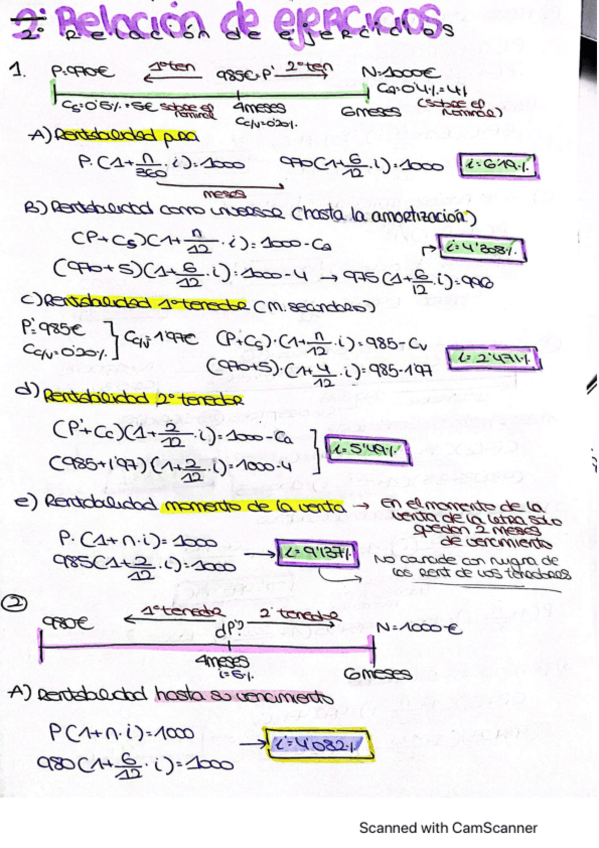 2ª Relación de ejercicios
1. P=970€ 1º ten 985€=P' 2º ten N=1000€
Ca=0'4%=4%
Cs=0'5%=5€ sobre el nominal 4meses 6meses (sobre el nominal)
Cc/v=0'20%
A) Rentabilidad pura
P·(1+n/360·i)=1000 970(1+6/12·i)=1000 i=6'19%
meses
B) Rentabilidad como inversor (hasta la amortización)
(P+Cs)(1+n/12·i)=1000-Ca i=4'308%
(970+5)(1+6/12·i)=1000-4 → 975(1+6/12·i)=996
C) Rentabilidad 1º tenedor (M. secundario)
P'=985€
Cc/v=0'20% ] Cc/v=1'97€ (P+Cs)·(1+n/12·i)=985-Cv
(970+5)·(1+4/12·i)=985-1'97 i=2'471%
d) Rentabilidad 2º tenedor
(P'+Cc)(1+2/12·i)=1000-Ca
(985+1'97)(1+2/12·i)=1000-4 i=5'49%
e) Rentabilidad momento de la venta → en el momento de la
venta de la letra solo
quedan 2 meses
de vencimiento
P·(1+n·i)=1000
985(1+2/12·i)=1000 → i=9'137%
No coincide con ninguna de
las Rent de los tenedores
2 980€ 1º tenedor 2º tenedor N=1000€
¿P'?
4meses 6meses
i=6%
A) Rentabilidad hasta su vencimiento
P(1+n·i)=1000
980(1+6/12·i)=1000 → i=4'082%
Scanned with CamScanner